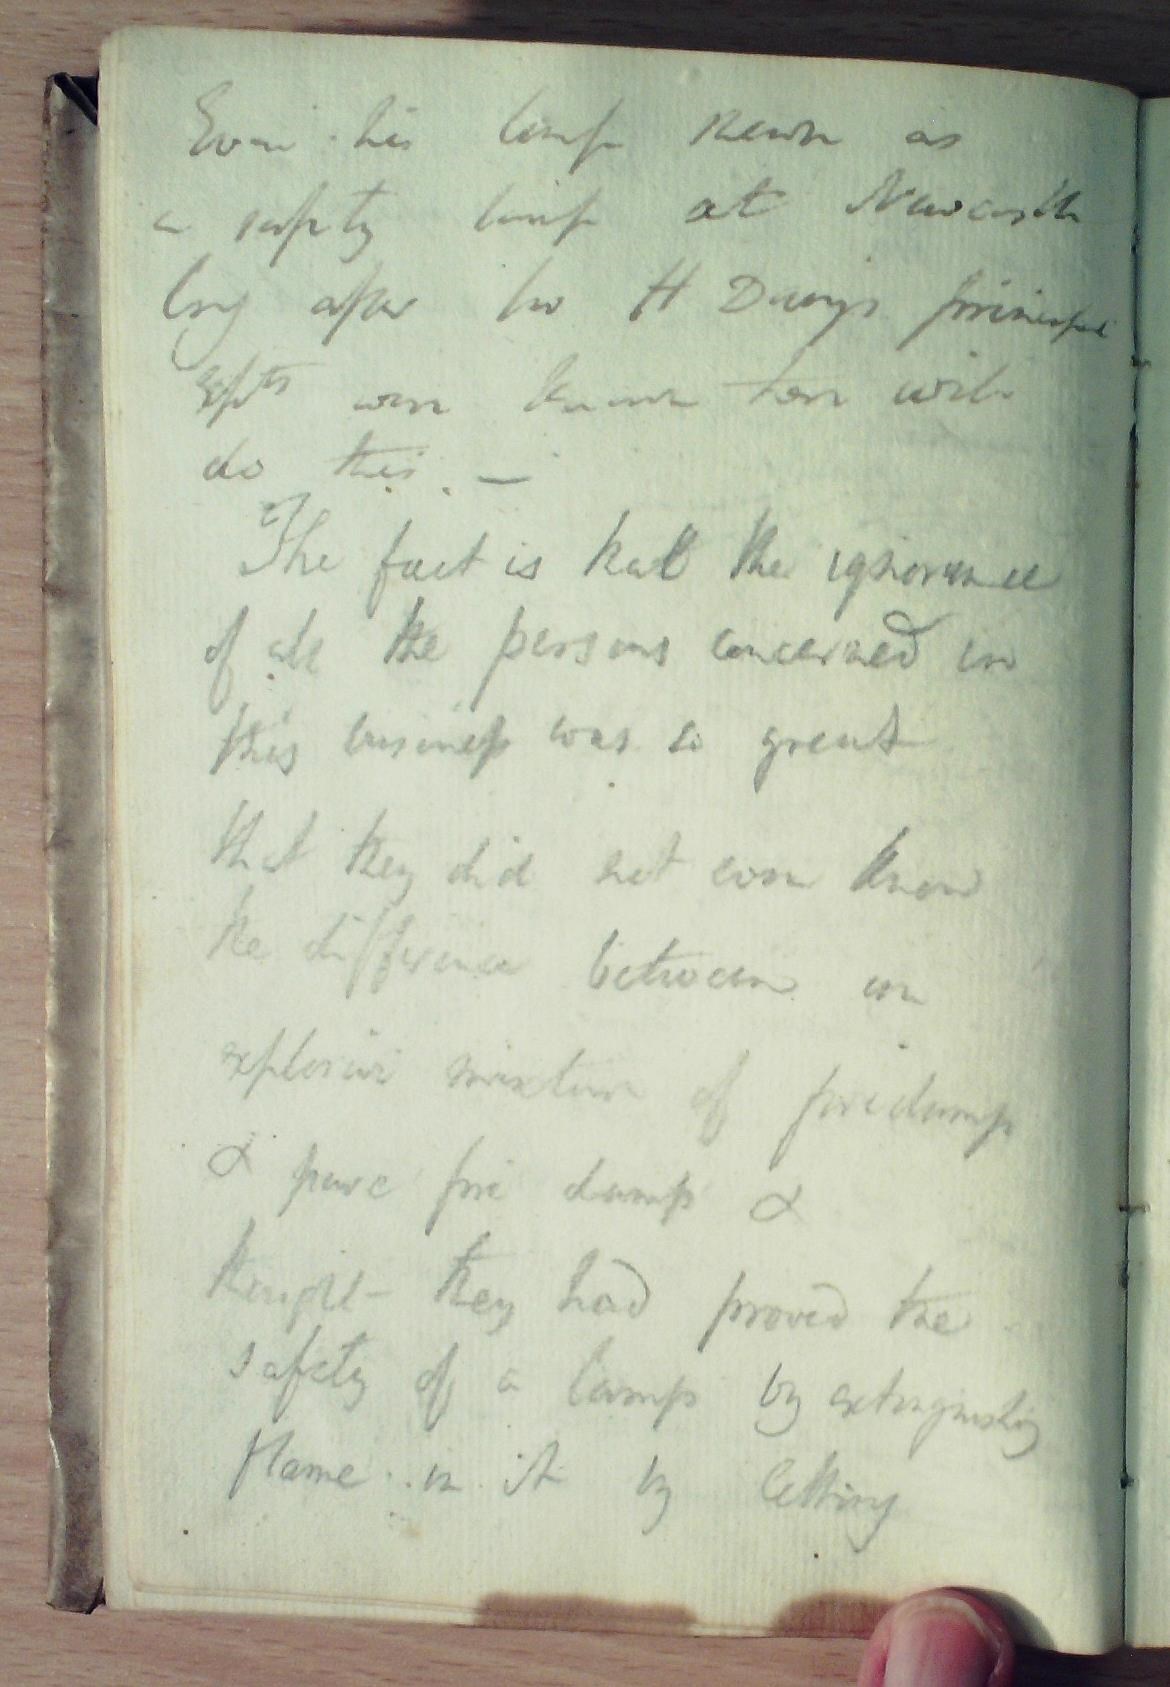 Even his lamp shewn as
a safety lamp at Newcastle
long after Sir H Davys principal
Expts were known
do this. —
The fact is that the ignorance
of all the persons concerned in
this business was so great
that they did not even know
the difference between an
explosive mixture of firedamp
& pure fire damp &
thought they had proved the
safety of a lamp by extinguishing
flame in it by letting